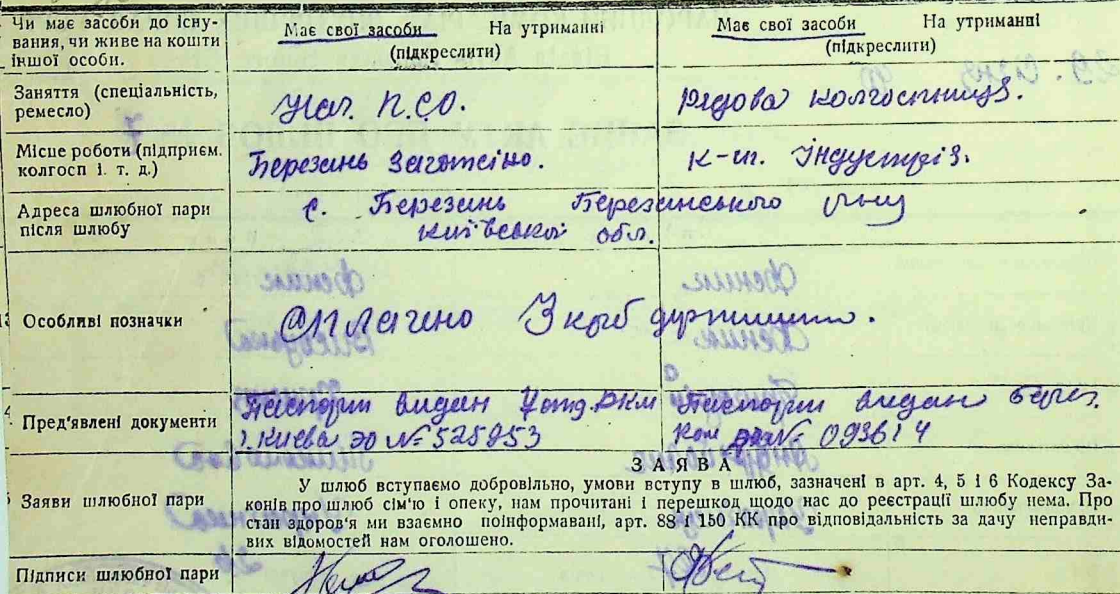 Чи має засоби до існування, чи живе на кошти іншої особи.
Має свої засоби На утриманні
(підкреслити)
Має свої засоби На утриманні
(підкреслити)
Заняття (спеціальність, ремесло)
Нач. П.С.О.
Рядова колгоспниця.
Місце роботи (підприєм. колгосп і. т. д.)
Березань Заготсіно.
К-п. Індустрія.
Адреса шлюбної пари після шлюбу
с. Березань Березанського р-ну
Київської обл.
Особливі позначки
Оплачено 3 крб держмито.
Пред'явлені документи
Паспорти видан РКМ
Києва № 525953
Паспорти видан Берез.
№ 093614
ЗАЯВА
Заяви шлюбної пари
У шлюб вступаємо добровільно, умови вступу в шлюб, зазначені в арт. 4, 5 і 6 Кодексу За-
конів про шлюб сім'ю і опеку, нам прочитані і перешкод щодо нас до реєстрації шлюбу нема. Про
стан здоров'я ми взаємно поінформавані, арт. 88 і 150 КК про відповідальність за дачу неправди-
вих відомостей нам оголошено.
Підписи шлюбної пари